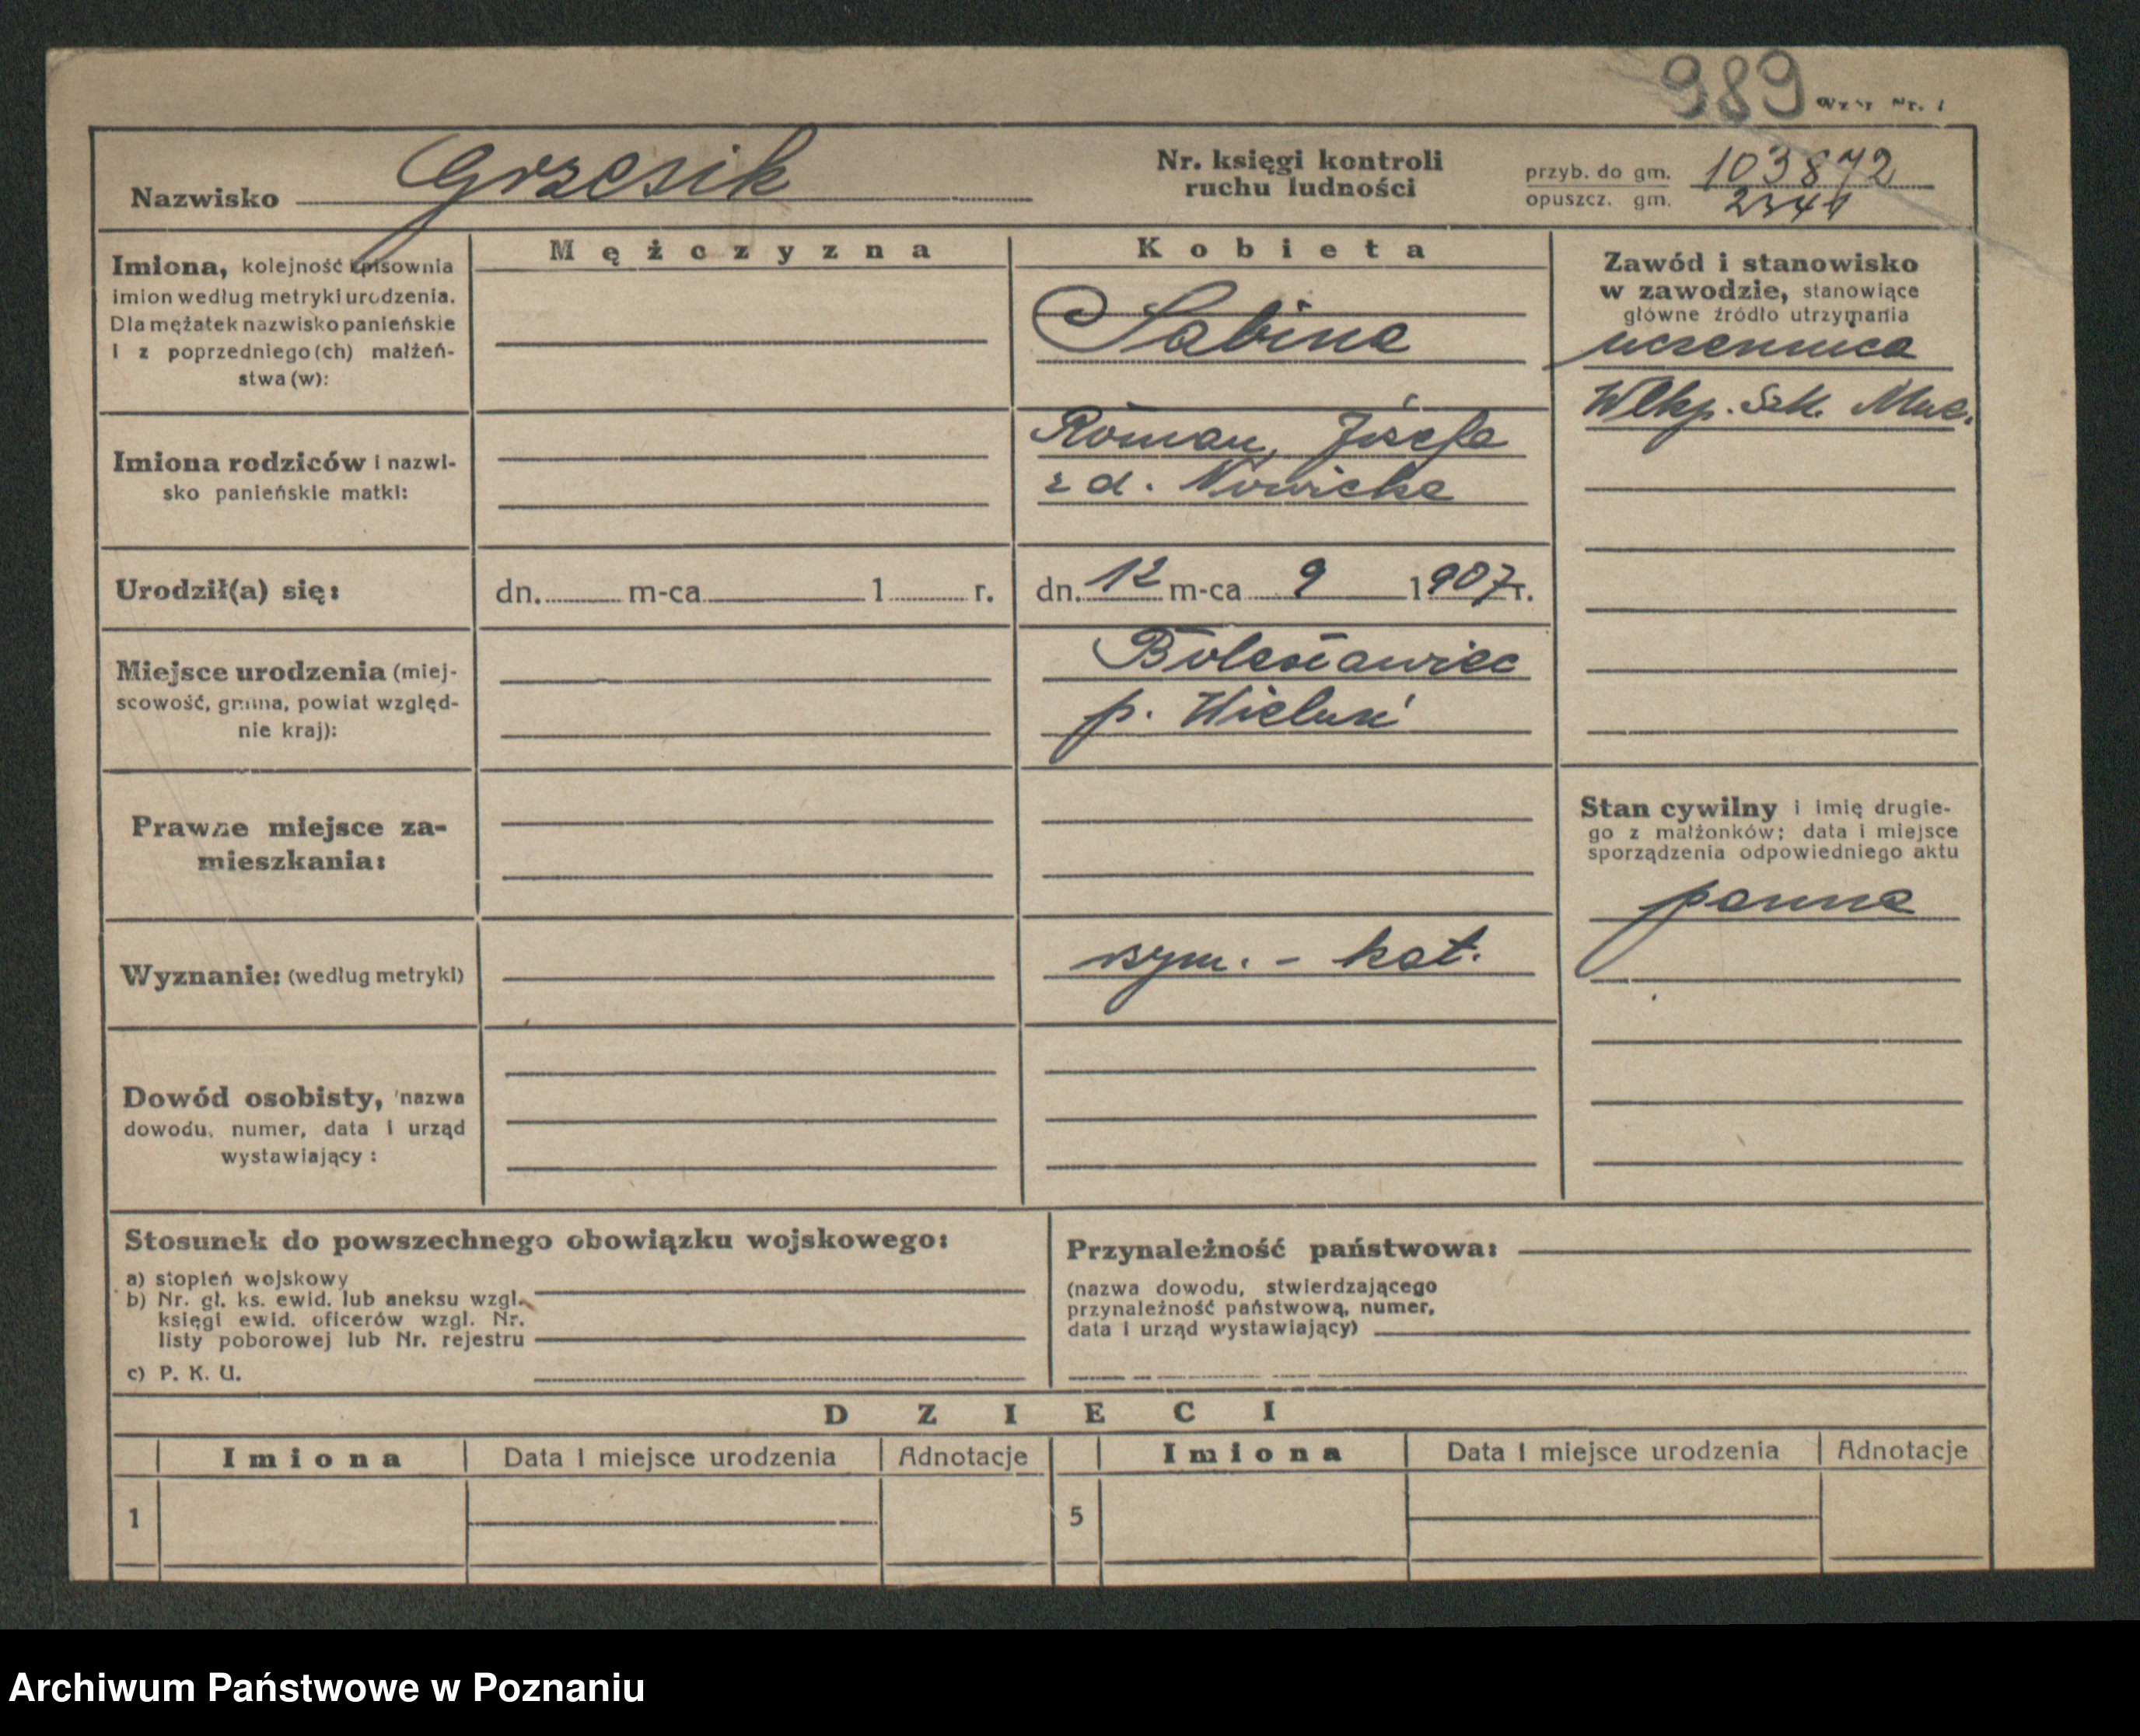 989
Wzór Nr. 1
Nazwisko Grzesik
Nr. księgi kontroli
ruchu ludności
przyb. do gm. 103872
opuszcz. gm. 2341
Imiona, kolejność i pisownia
imion według metryki urodzenia.
Dla mężatek nazwisko panieńskie
i z poprzedniego(ch) małżeń-
stwa(w):
Mężczyzna
Kobieta
Sabina
Zawód i stanowisko
w zawodzie, stanowiące
główne źródło utrzymania
uczennica
Wlkp. Szk. Muz.
Imiona rodziców i nazwi-
sko panieńskie matki:
Roman, Józefa
z d. Nowicka
Urodził(a) się:
dn. m-ca 1 r.
dn. 12 m-ca 9 1907 r.
Miejsce urodzenia (miej-
scowość, gmina, powiat względ-
nie kraj):
Bolesławiec
p. Wieluń
Prawne miejsce za-
mieszkania:
Stan cywilny i imię drugie-
go z małżonków; data i miejsce
sporządzenia odpowiedniego aktu
panna
Wyznanie: (według metryki)
rzym. - kat.
Dowód osobisty, nazwa
dowodu, numer, data i urząd
wystawiający :
Stosunek do powszechnego obowiązku wojskowego:
a) stopień wojskowy
b) Nr. gł. ks. ewid. lub aneksu wzgl.
księgi ewid. oficerów wzgl. Nr.
listy poborowej lub Nr. rejestru
c) P. K. U.
Przynależność państwowa:
(nazwa dowodu, stwierdzającego
przynależność państwową, numer,
data i urząd wystawiający)
DZIECI
Imiona Data i miejsce urodzenia Adnotacje Imiona Data i miejsce urodzenia Adnotacje
1 5
Archiwum Państwowe w Poznaniu